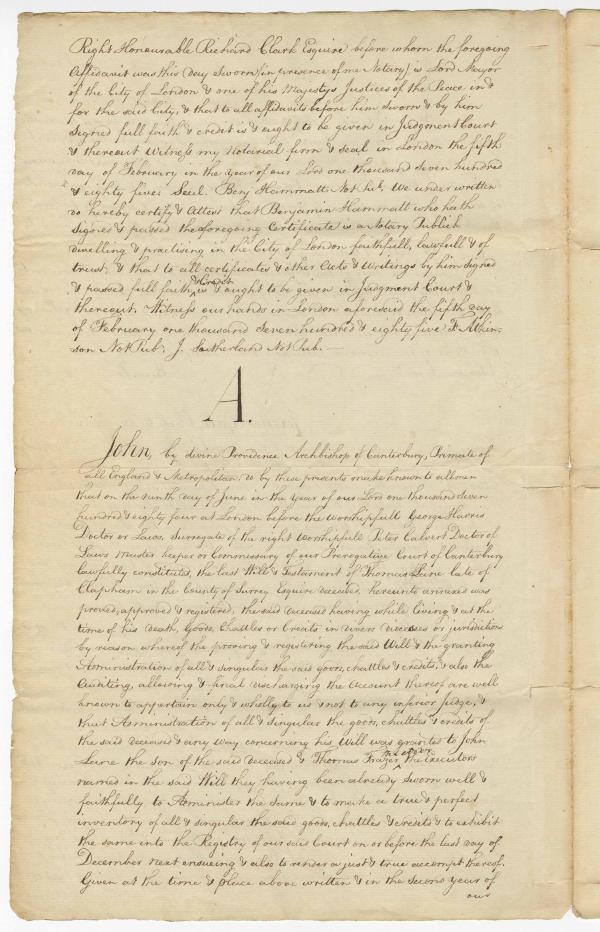 Right Honourable Richard Clark Esquire before whom the foregoing
Affidavit was this day Sworn (in presence of me Notary) is Lord Mayor
of the City of London & one of his Majestys Justices of the Peace in &
for the said City, & that to all affidavits before him Sworn & by him
Signed full faith & credit is & ought to be given in Judgment Court
& thereout Witness my notarial firm & seal in London the fifth
day of February in the year of our Lord one thousand seven hundred
& eighty five. Seal. Benj Hammatt Not Pub, We under written
do hereby certify & Attest that Benjamin Hammatt who hath
Signed & passed the foregoing Certificate is a Notary Publick
dwelling & practising in the City of London faithfull, lawfull & of
trust; & that to all certificates & other Acts & Writings by him signed
& passed full faith & Credit is & ought to be given in Judgment Court &
thereout. Witness our hands in London aforesaid the fifth day
of February one thousand seven hundred & eighty five F. Atkin-
son Not Pub; J. Sutherland Not Pub.
A.
John, by divine Providence Archbishop of Canterbury, Primate of
all England & Metropolitan; do by these presents make known to all men
that on the ninth day of June in the Year of our Lord one thousand seven
hundred & eighty four at London before the worshipfull George Harris
Doctor of Laws, Surrogate of the right worshipfull Peter Calvert Doctor of
Laws Master keeper or Commissary of our Prerogative Court of Canterbury
lawfully constituted, the last Will & Testament of Thomas Lane late of
Clapham in the County of Surrey Esquire deceased, hereunto annexed was
proved, approved & registered, the said deceased having while living & at the
time of his death, Goods, Chattles or Credits in divers diocesses or jurisdictions
by reason whereof the proving & registering the said Will & the granting
Administration of all & singular the said goods, chattles & credits, & also the
Auditing, allowing & final discharging the Account thereof are well
known to appertain only & wholly to us & not to any inferior Judge, &
that Administration of all & singular the goods, chattles & credits of
the said deceased & any way concerning his Will was granted to John
Lane the son of the said deceased & Thomas Frazer the executors
named in the said Will they having been already Sworn well &
faithfully to Administer the same & to make a true & perfect
inventory of all & singular the said goods, chattles & credits & to exhibit
the same into the Registry of our said Court on or before the last day of
December next ensueing & also to render a just & true accompt thereof.
Given at the time & place above written & in the second year of
our